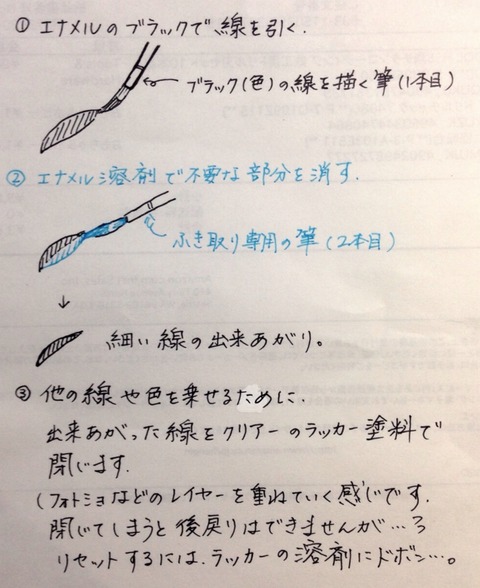 ① エナメルのブラックで線を引く.
ブラック(色)の線を描く筆(1本目)
② エナメル溶剤で不要な部分を消す.
ふき取り専用の筆(2本目)
↓
細い線の出来あがり。
③ 他の線や色を乗せるために.
出来あがった線をクリアーのラッカー塗料で
閉じます.
(フォトショなどのレイヤーを重ねていく感じです.
閉じてしまうと後戻りはできませんが…
リセットするには、ラッカーの溶剤にドボン…。